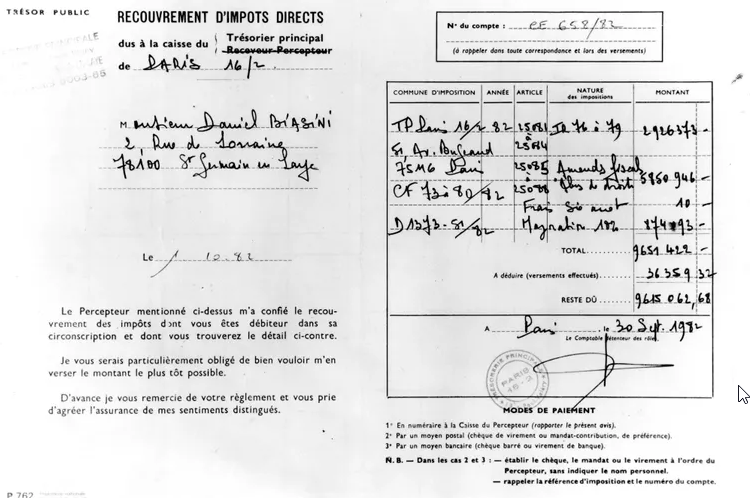 TRÉSOR PUBLIC
RECOUVREMENT D'IMPOTS DIRECTS
dus à la caisse du Trésorier principal
Receveur-Percepteur
de PARIS 16/2
Monsieur Daniel BIASINI
2, Rue de Lorraine
78100 St Germain en Laye
Le 1 10.82
Le Percepteur mentionné ci-dessus m'a confié le recou-
vrement des impôts dont vous êtes débiteur dans sa
circonscription et dont vous trouverez le détail ci-contre.
Je vous serais particulièrement obligé de bien vouloir m'en
verser le montant le plus tôt possible.
D'avance je vous remercie de votre règlement et vous prie
d'agréer l'assurance de mes sentiments distingués.
P 762
N° du compte : CF 658/82
(à rappeler dans toute correspondance et lors des versements)
COMMUNE D'IMPOSITION ANNÉE ARTICLE NATURE des impositions MONTANT
TP Paris 16/2 82 25081 IR 76 à 79 2926373 -
51, Av. Bugeaud à 25084
75116 Paris 25085 Amende fiscale
CF 73 à 80/82 à 25088 Abus de droit 5850946 -
Frais 10 -
D1373-51/82 Majoration 10% 874093 -
TOTAL 9651422 -
A déduire (versements effectués) 36359,32
RESTE DÛ 9615062,68
A Paris, le 30 Sept. 1982
Le Comptable détenteur des rôles,
TRÉSORERIE PRINCIPALE
PARIS
16-2
MODES DE PAIEMENT
1° En numéraire à la Caisse du Percepteur (rapporter le présent avis).
2° Par un moyen postal (chèque de virement ou mandat-contribution, de préférence).
3° Par un moyen bancaire (chèque barré ou virement de banque).
N.B. — Dans les cas 2 et 3 : — établir le chèque, le mandat ou le virement à l'ordre du
Percepteur, sans indiquer le nom personnel.
— rappeler la référence d'imposition et le numéro du compte.